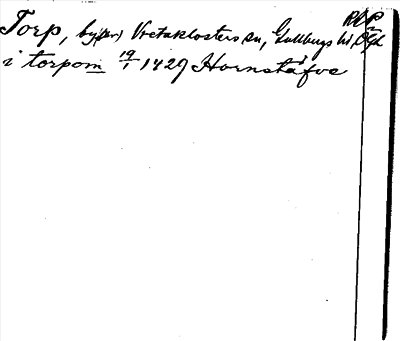 RAP
Torp, by(ar) Vretaklosters sn, Gullbergs hd, Ögl
i torpom 19/1 1429 Hornstafve